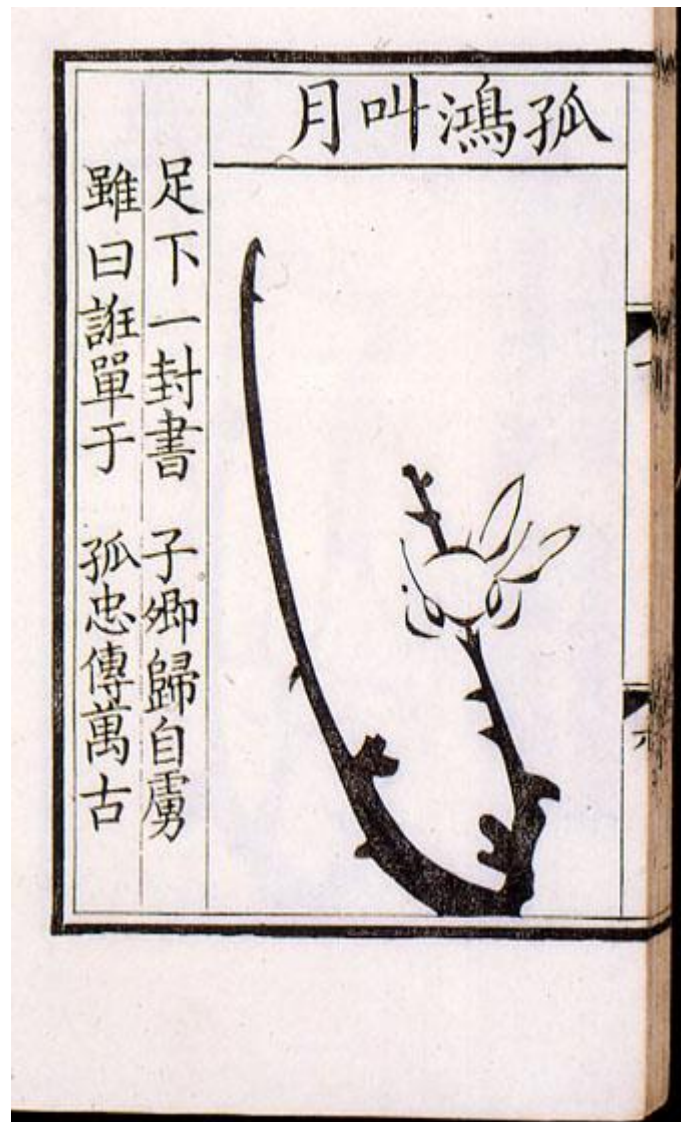 孤鴻叫月
足下一封書　子卿歸自虜
雖曰誑單于　孤忠傳萬古